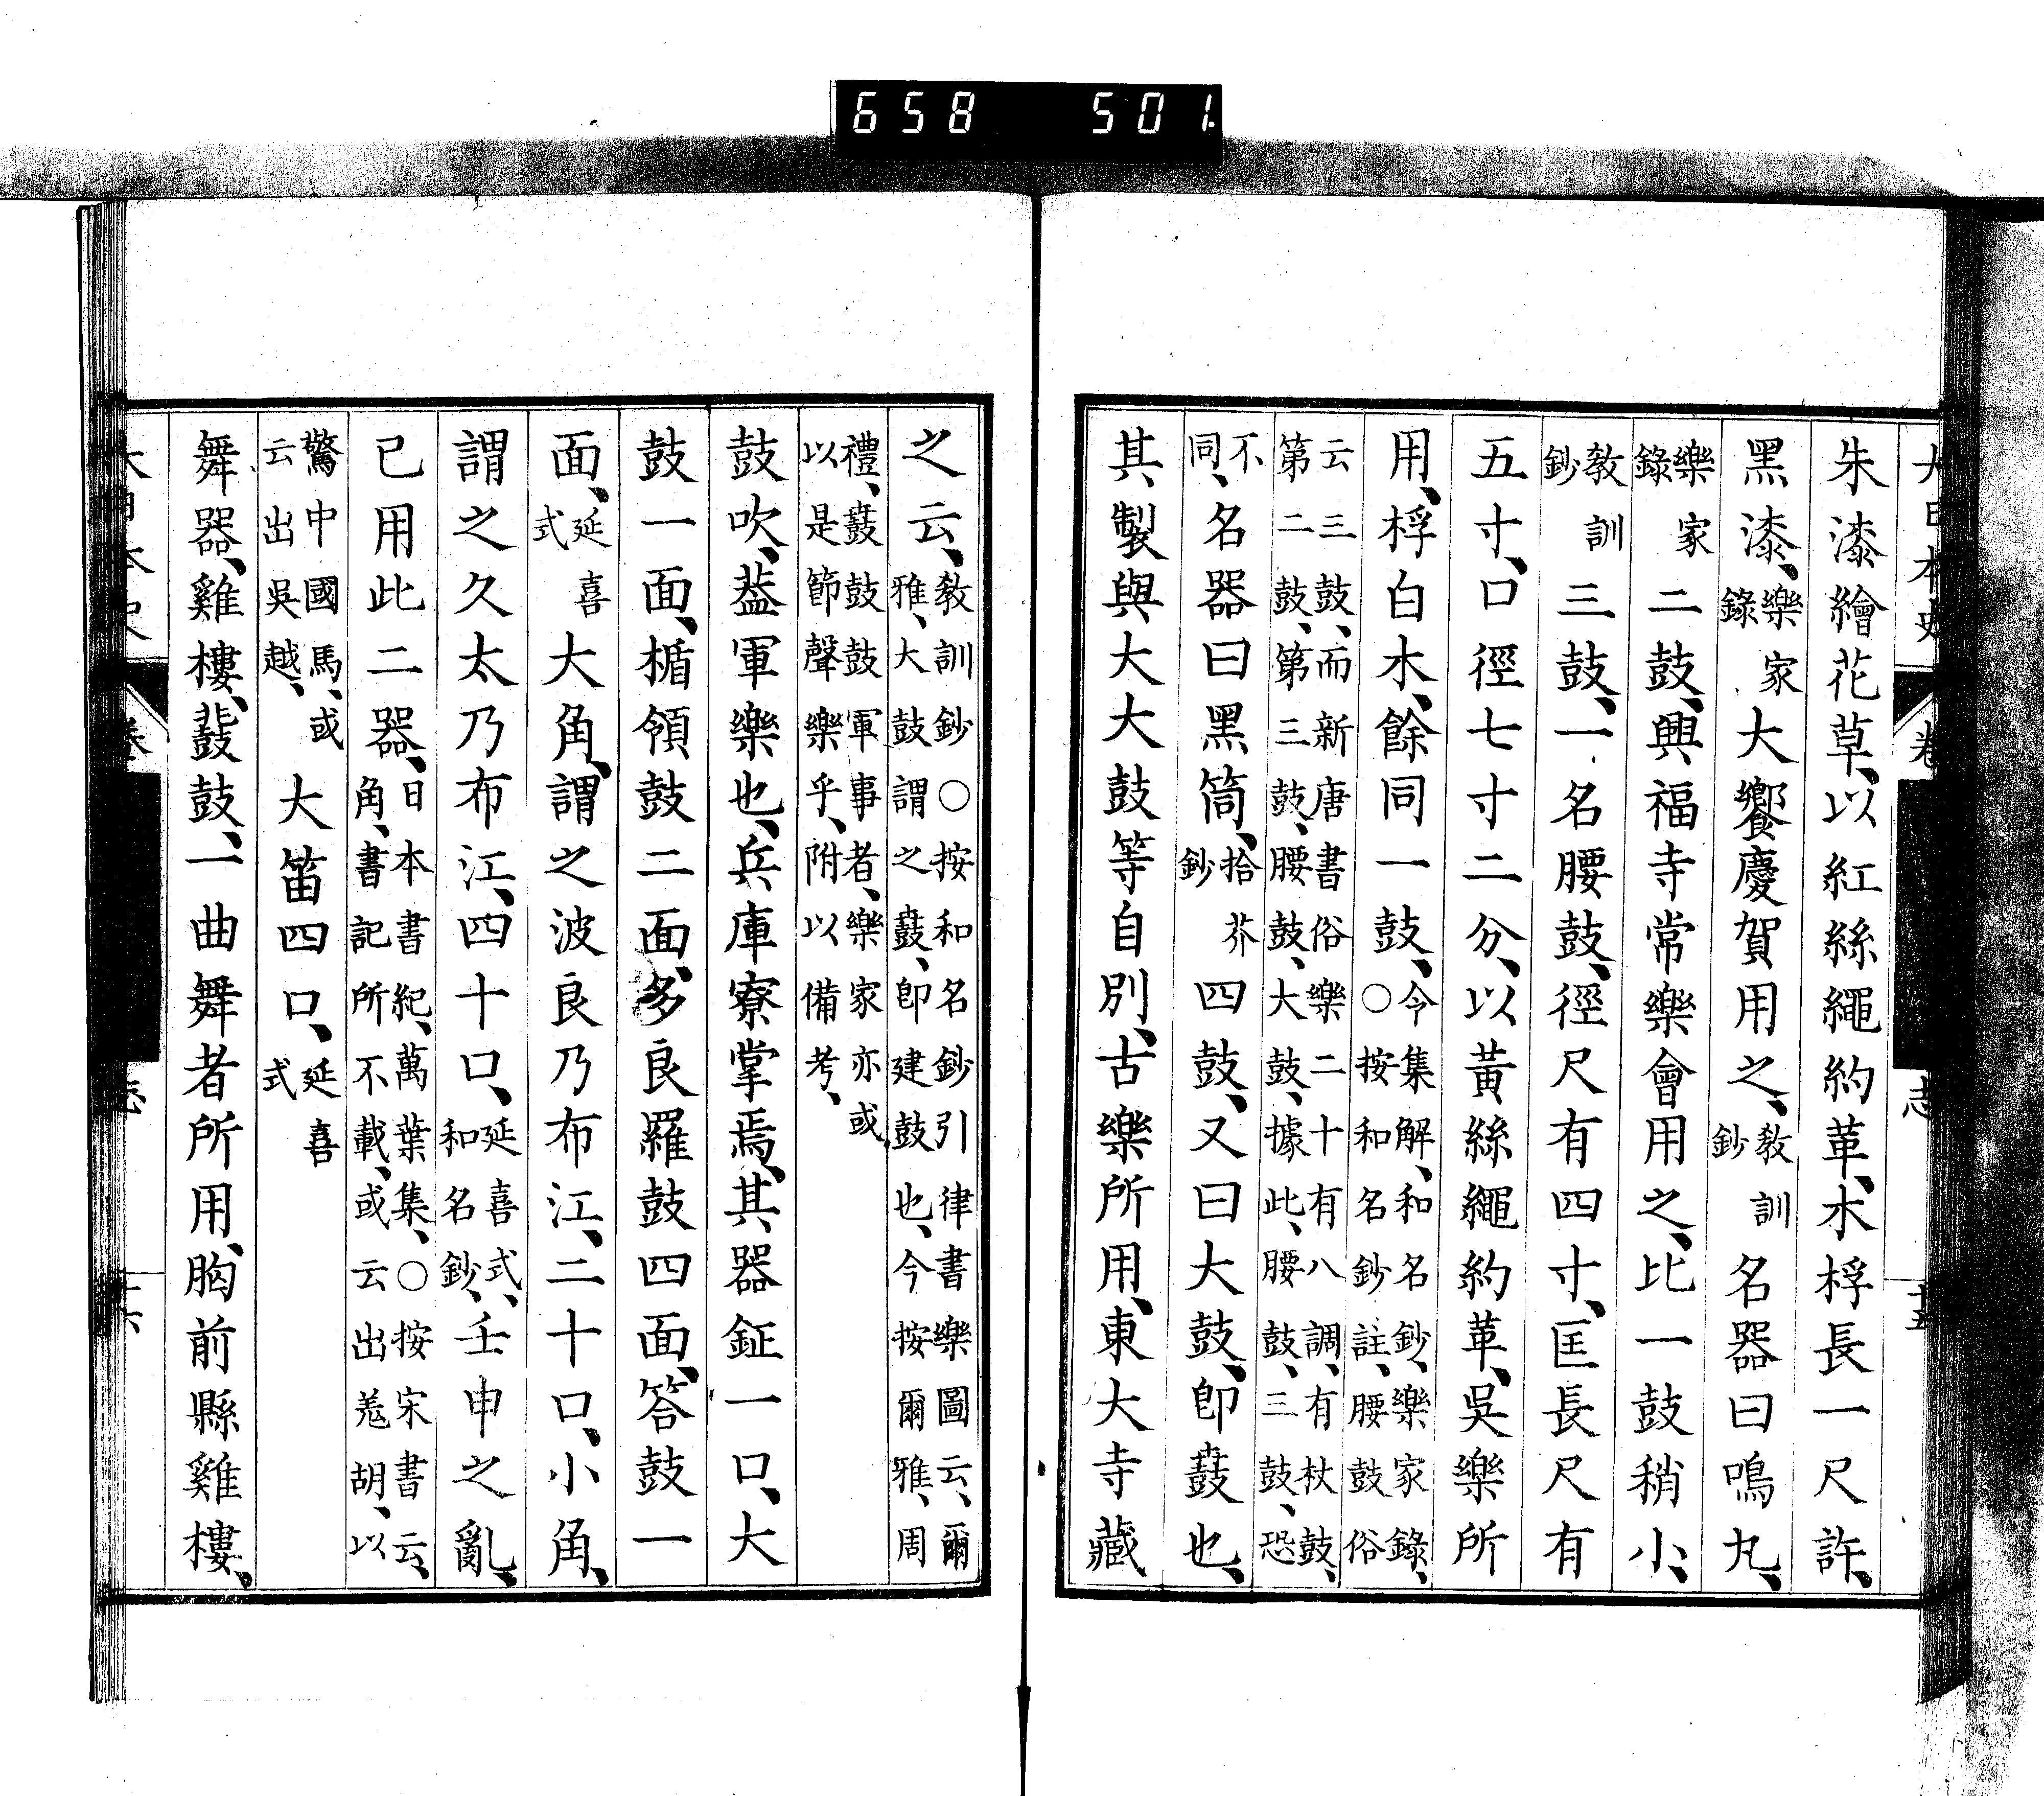 658 501
朱漆繪花草、以紅絲繩約革、木桴長一尺許、
黑漆、樂家錄大饗慶賀用之、教訓鈔名器曰鳴丸、
樂家錄二鼓、興福寺常樂會用之、比一鼓稍小、
教訓鈔三鼓、一名腰鼓、徑尺有四寸、匡長尺有
五寸、口徑七寸二分、以黃絲繩約革、吳樂所
用、桴白木、餘同一鼓、令集解、和名鈔、樂家錄、○按和名鈔註、腰鼓俗
云三鼓、而新唐書俗樂二十有八調、有杖鼓、第二鼓、第三鼓、腰鼓、大鼓、據此、腰鼓、三鼓、恐
不同、名器曰黑筒、拾芥鈔四鼓、又曰大鼓、卽鼖也、
其製與大大鼓等自別、古樂所用、東大寺藏
之云、教訓鈔○按和名鈔引律書樂圖云、爾雅、大鼓謂之鼖、卽建鼓也、今按爾雅、周
禮、鼖鼓鼓軍事者、樂家亦或以是節聲樂乎、附以備考、
鼓吹、葢軍樂也、兵庫寮掌焉、其器鉦一口、大
鼓一面、楯領鼓二面、多良羅鼓四面、答鼓一
面、延喜式大角、謂之波良乃布江、二十口、小角、
謂之久太乃布江、四十口、延喜式、和名鈔、壬申之亂、
已用此二器、日本書紀、萬葉集、○按宋書云、角、書記所不載、或云出羌胡、以
驚中國馬、或云出吳越、大笛四口、延喜式
舞器、雞樓、鼗鼓、一曲舞者所用、胸前縣雞樓、